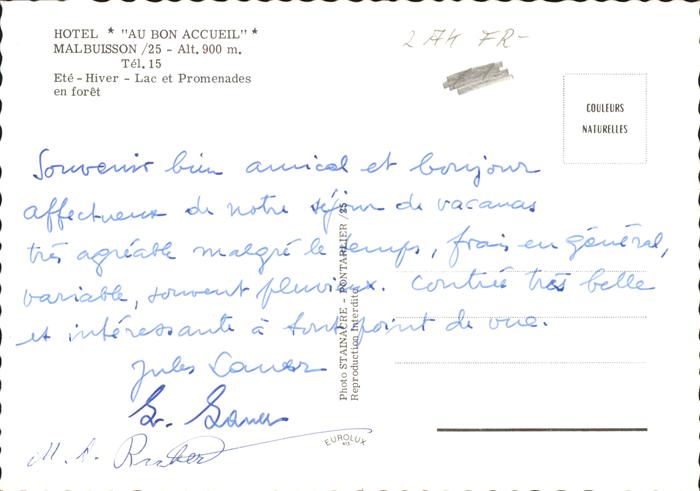 HOTEL * "AU BON ACCUEIL" *
MALBUISSON /25 - Alt. 900 m.
Tél. 15
Eté - Hiver - Lac et Promenades
en forêt
2 A4 FR-
COULEURS
NATURELLES
Souvenir bien amical et bonjour
affectueux de notre séjour de vacances
très agréable malgré le temps, frais en général,
variable, souvent pluvieux. Contrée très belle
et intéressante à tout point de vue.
Jules
Photo STAINACRE - PONTARLIER /25
Reproduction Interdite
EUROLUX